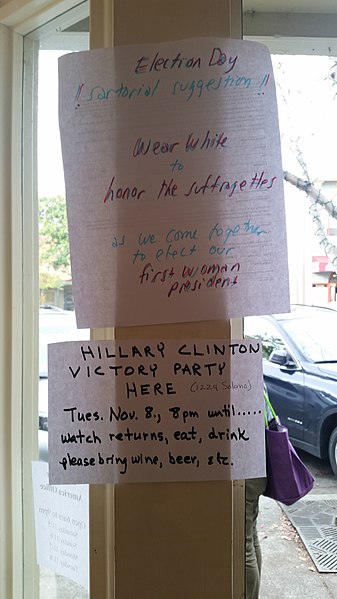 Election Day
!! sartorial suggestion !!
Wear White
to
honor the suffragettes
as we come together
to elect our
first woman
president
HILLARY CLINTON
VICTORY PARTY
HERE (1224 Solano)
Tues. Nov. 8, 8pm until.....
watch returns, eat, drink
please bring wine, beer, etc.
America Office
Open 9am to 9pm